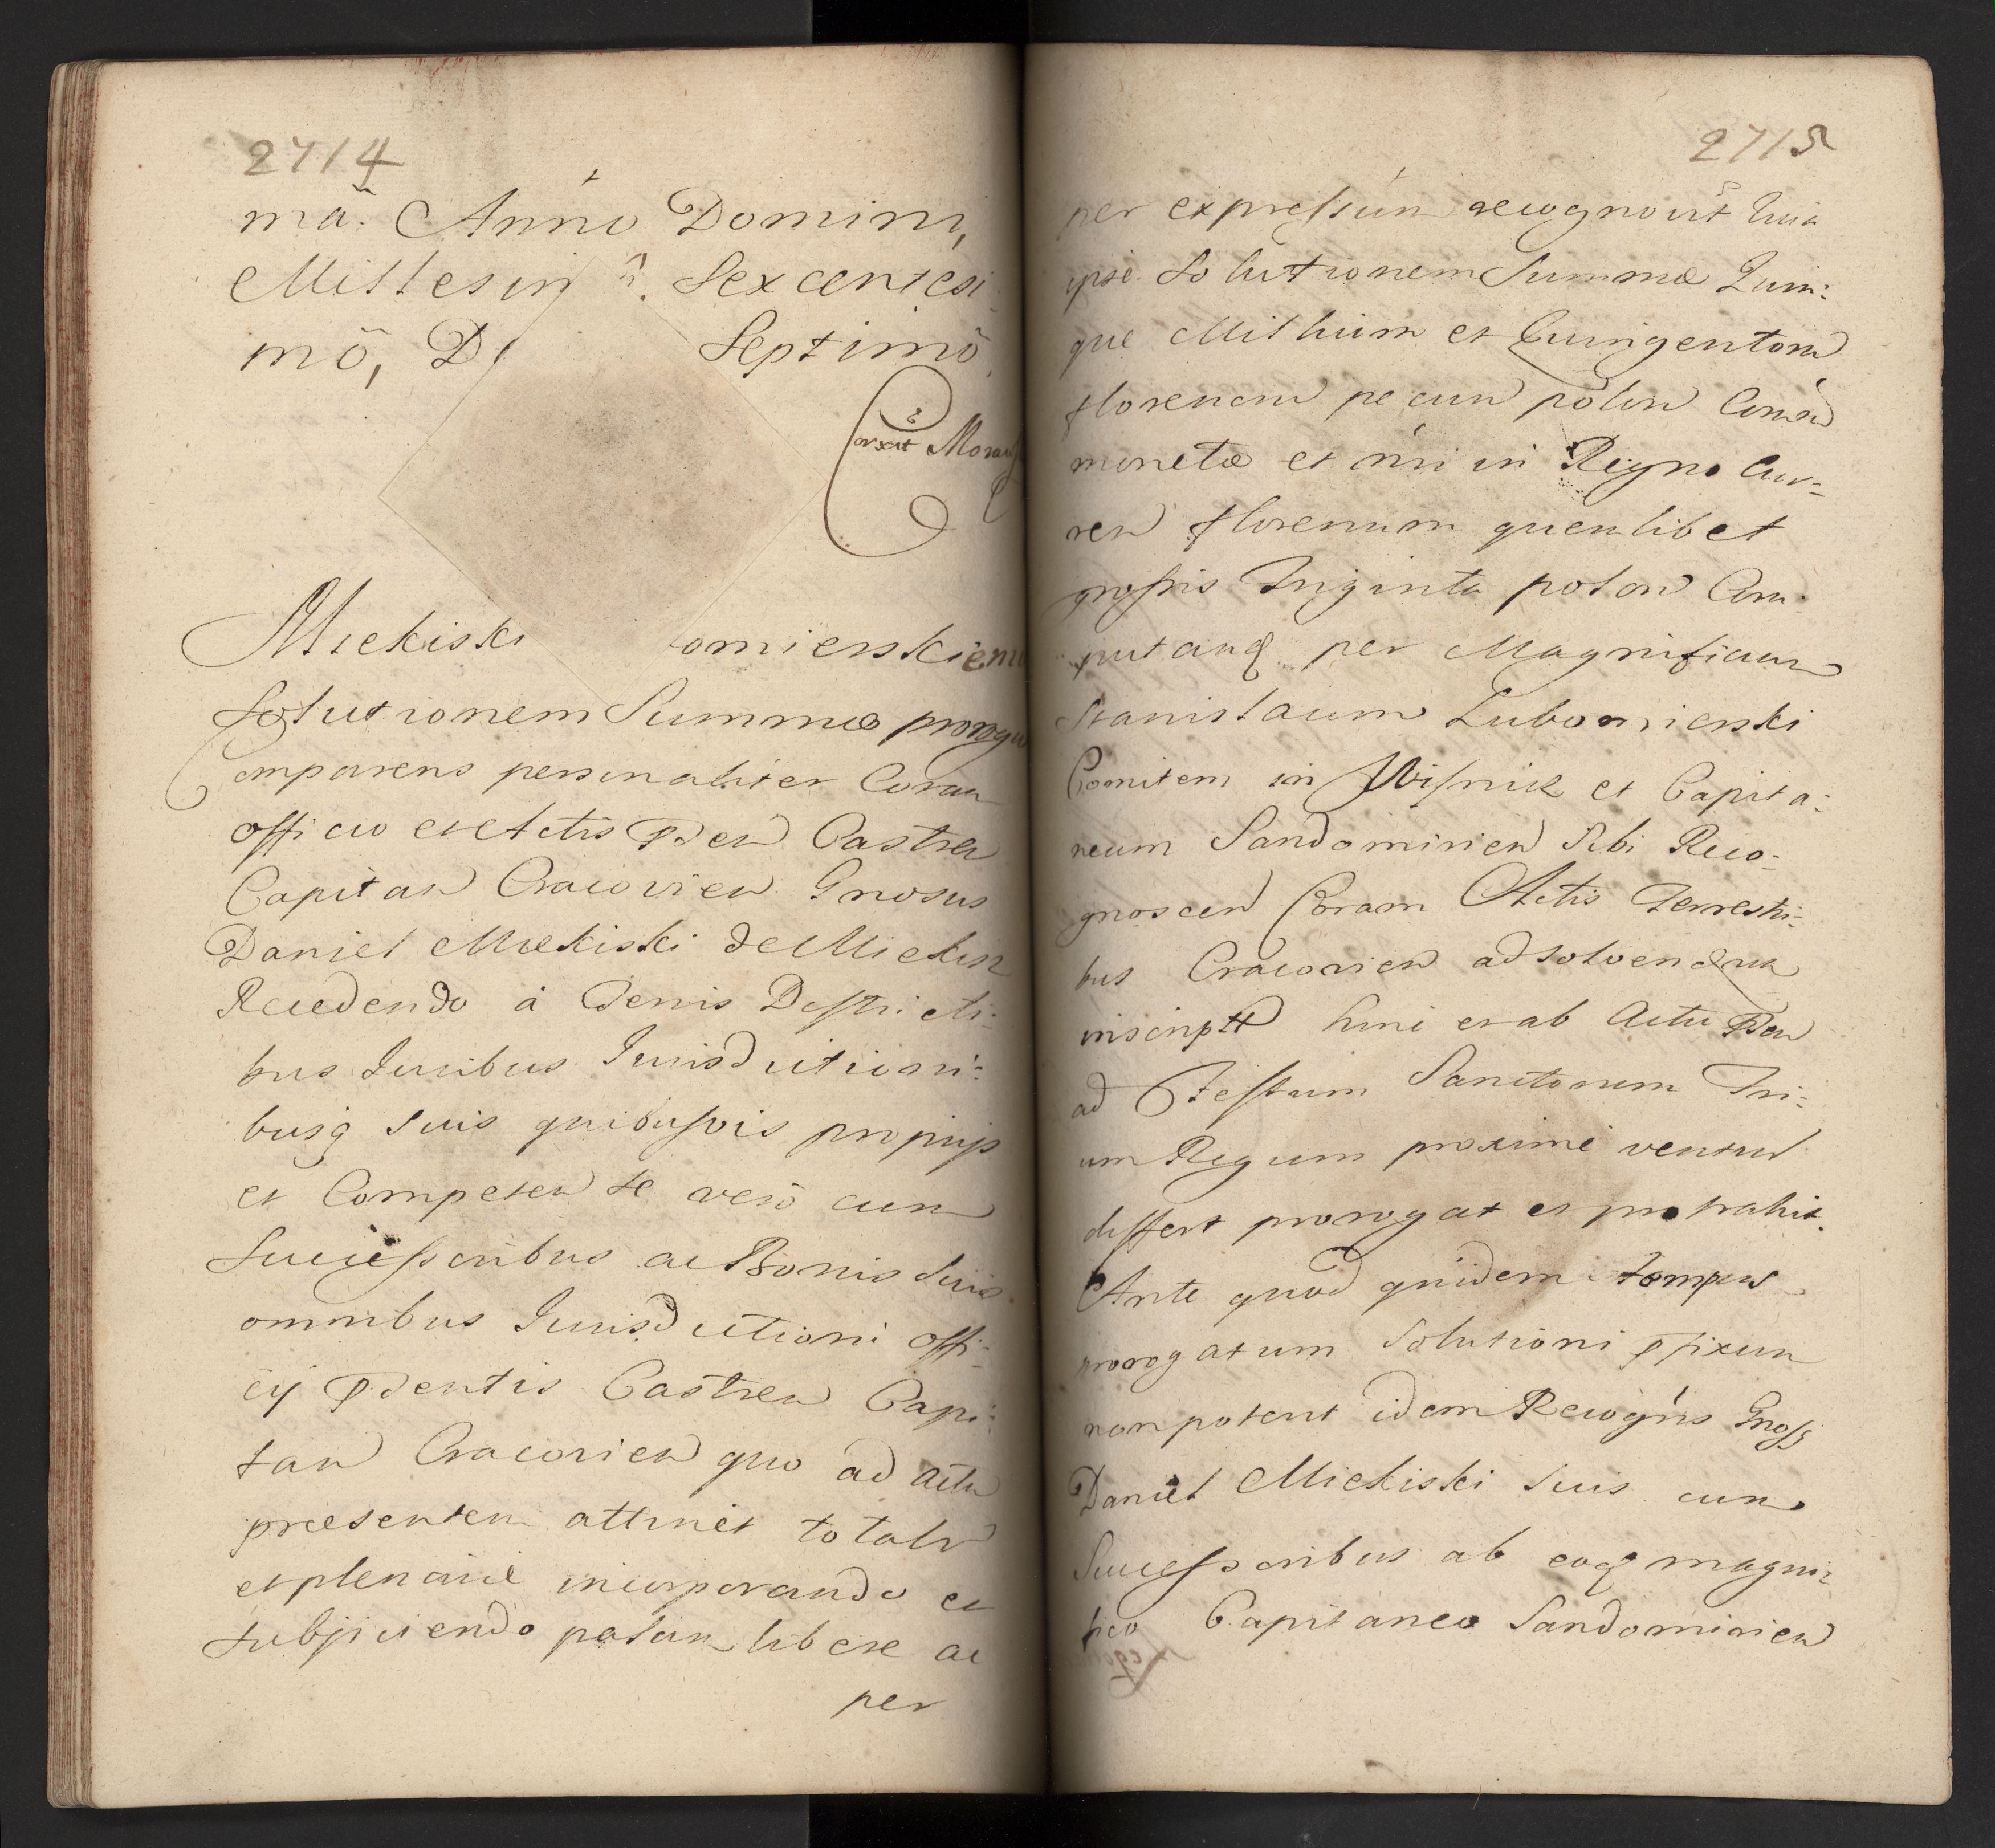 2714
mã. Anno Domini,
Millesim Sexcentesi
mõ, D Septimõ
Corxit
Miekiski omierskiemu
Solutionem Summæ prorogat
Comparens personaliter Coram
officio et Actis Pden Castren
Capitan Cracovien Gnosus
Daniel Miekiski de Miekisz
Recedendo à Terris Districti-
bus Juribus Jurisdictioni-
busq suis quibusvis proprijs
et Competen se vero cum
Successoribus ac Bonis Suis
omnibus Jurisdictioni offi-
cij Pdentis Castren Capi-
tan Cracovien quo ad actu
præsentem attinet totalr
et plenarie incorporando et
subjiciendo palam libere ac
per
2715
per expressum recognovit Quia
ipse Solutionem Summæ Quin-
que Millium et Quingentorum
florenorum pecun polon
monetæ et nri in Regno Cur-
ren florenum quenlibet
grossis Triginta polon Com-
putanq per Magnificum
Stanislaum Lubomierski
Comitem in Wisnicz et Capita-
neum Sandomirien Sibi Reco-
gnoscen Coram Actis Terrestri-
bus Cracovien ad solvendum
inscript hinc et ab Actu Pden
ad Festum Sanctorum Tri-
um Regum proximè ventur
differt prorogat et protrahit.
Ante quod quidem tempus
prorogatum Solutioni pfixum
non poterit idem Recogns Gnoss
Daniel Miekiski suis cum
Successoribus ab eoq magni-
fico Capitaneo Sandomirien